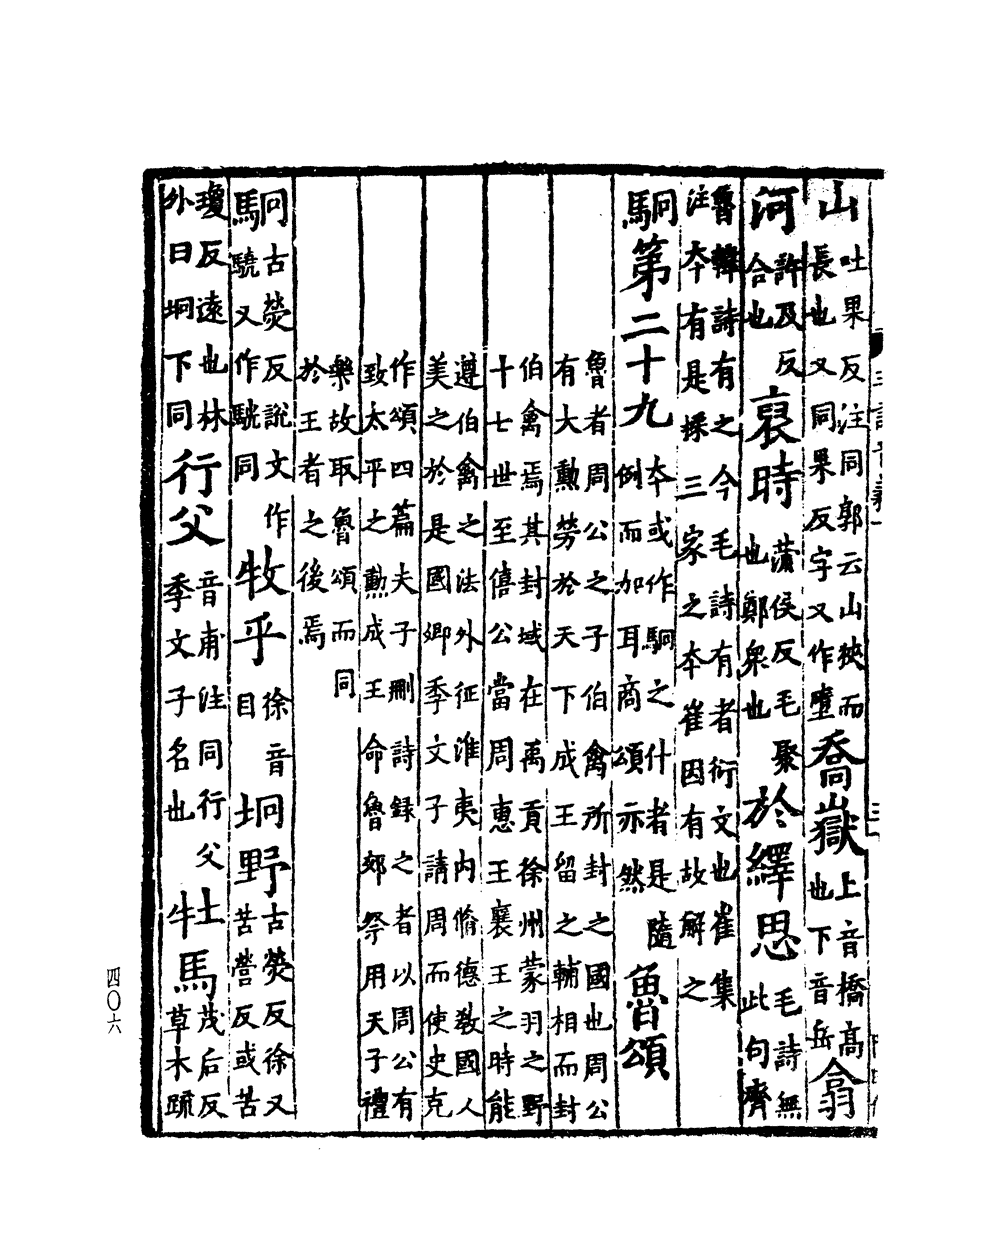 山吐果反注同郭云山狹而長也又同果反字又作墮喬嶽上音橋高也下音岳翕
河許及反合也裒時蒲侯反毛聚也鄭衆也於繹思毛詩無此句齊
魯韓詩有之今毛詩有者衍文也崔集注夲有是採三家之夲崔因有故解之
駉第二十九夲或作駉之什者是隨例而加耳商頌亦然魯頌
魯者周公之子伯禽所封之國也周公有大勳勞於天下成王留之輔相而封
伯禽焉其封域在禹貢徐州蒙羽之野十七世至僖公當周惠王襄王之時能
遵伯禽之法外征淮夷内脩德教國人美之於是國卿季文子請周而使史克
作頌四篇夫子刪詩録之者以周公有致太平之勳成王命魯郊祭用天子禮
樂故取魯頌而同於王者之後焉
駉古熒反說文作驍又作駫同牧乎徐音目坰野古熒反徐又苦營反或苦
瓊反遠也林外曰坰下同行父音甫注同行父季文子名也牡馬茂后反草木疏
四〇六